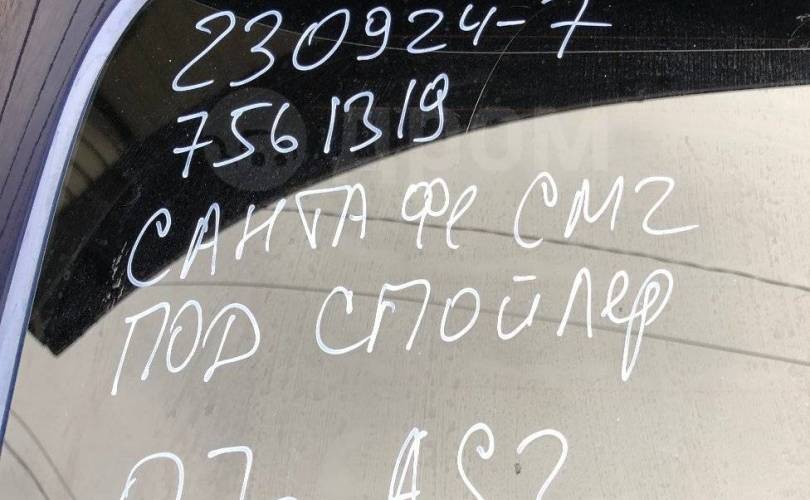 230924-7
7561319
САНТА ФЕ СМ2
ПОД СПОЙЛЕР
ДРОМ